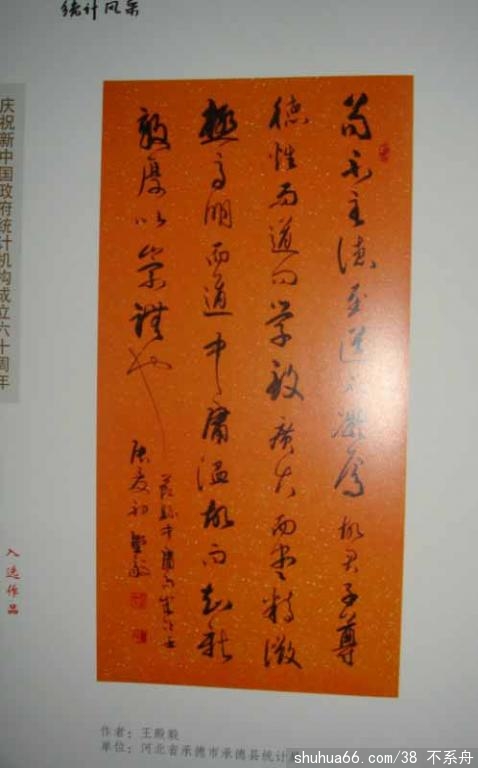 统计风采
庆祝新中国政府统计机构成立六十周年
苟不至德至道不凝焉故君子尊
德性而道问学致廣大而尽精微
極高明而道中庸温故而知新
敦厚以崇禮也
入选作品
作者：王殿毅
单位：河北省承德市承德县统计
shuhua66.com/38 不系舟